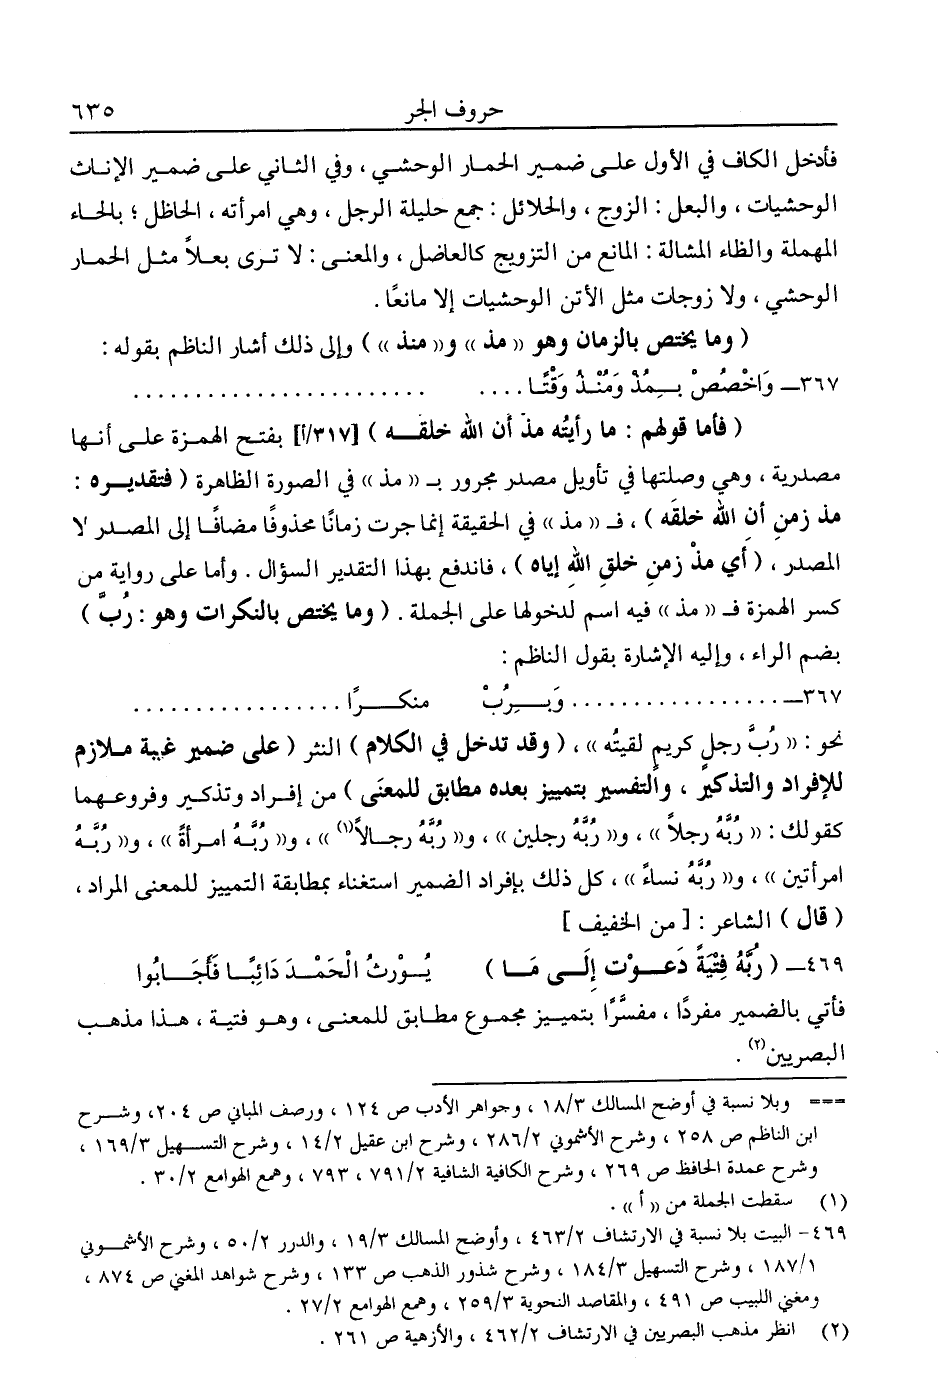 حروف الجر ٦٣٥
فأدخل الكاف في الأول على ضمير الحمار الوحشي ، وفي الثاني على ضمير الإناث
الوحشيات ، والبعل : الزوج ، والحلائل : جمع حليلة الرجل ، وهي امرأته ، الحاظل ؛ بالحاء
المهملة والظاء المشالة : المانع من التزويج كالعاضل ، والمعنى : لا ترى بعلاً مثل الحمار
الوحشي ، ولا زوجات مثل الأتن الوحشيات إلا مانعًا .
( وما يختص بالزمان وهو « مذ » و« منذ » ) وإلى ذلك أشار الناظم بقوله :
٣٦٧ــ وَاخْصُصْ بِـمُذْ وَمُنْـذُ وَقْتًـا .... ........................
( فأما قولهم : ما رأيته مذ أن الله خلقـه ) [٣١٧/أ] بفتح الهمزة على أنها
مصدرية ، وهي وصلتها في تأويل مصدر مجرور بـ « مذ » في الصورة الظاهرة ( فتقديره :
مذ زمنِ أن الله خلقَه ) ، فـ « مذ » في الحقيقة إنما جرت زمانًا محذوفًا مضافًا إلى المصدر لا
المصدر ، ( أي مذْ زمنِ خلقِ اللهِ إياه ) ، فاندفع بهذا التقدير السؤال . وأما على رواية من
كسر الهمزة فـ « مذ » فيه اسم لدخولها على الجملة . ( وما يختص بالنكرات وهو : رُبَّ )
بضم الراء ، وإليه الإشارة بقول الناظم :
٣٦٧ــ .................. وَبِـرُبْ منكـرًا .................
نحو : « رُبَّ رجلٍ كريمٍ لقيتُه » ، ( وقد تدخل في الكلام ) النثر ( على ضمير غيبة ملازم
للإفراد والتذكير ، والتفسير بتمييز بعده مطابق للمعنى ) من إفراد وتذكير وفروعهما
كقولك : « رُبَّهُ رجلاً » ، و« رُبَّهُ رجلين » ، و« رُبَّهُ رجـالاً(١) » ، و« رُبَّـهُ امـرأةً » ، و« رُبَّـهُ
امرأتين » ، و« رُبَّهُ نساءً » ، كل ذلك بإفراد الضمير استغناء بمطابقة التمييز للمعنى المراد ،
( قال ) الشاعر : [ من الخفيف ]
٤٦٩ــ ( رُبَّهُ فِتْيَةً دَعَـوْت إِلَـى مَـا ) يُـوْرِثُ الْحَمْـدَ دَائِبًـا فَأَجَـابُوا
فأتي بالضمير مفردًا ، مفسَّرًا بتمييز مجموع مطابق للمعنى ، وهو فتية ، هذا مذهب
البصريين(٢) .
=== وبلا نسبة في أوضح المسالك ١٨/٣ ، وجواهر الأدب ص ١٢٤ ، ورصف المباني ص ٢٠٤، وشرح
ابن الناظم ص ٢٥٨ ، وشرح الأشموني ٢٨٦/٢ ، وشرح ابن عقيل ١٤/٢ ، وشرح التسهيل ١٦٩/٣ ،
وشرح عمدة الحافظ ص ٢٦٩ ، وشرح الكافية الشافية ٧٩١/٢ ، ٧٩٣ ، وهمع الهوامع ٣٠/٢ .
(١) سقطت الجملة من « أ » .
٤٦٩- البيت بلا نسبة في الارتشاف ٤٦٣/٢ ، وأوضح المسالك ١٩/٣ ، والدرر ٥٠/٢ ، وشرح الأشموني
١٨٧/١ ، وشرح التسهيل ١٨٤/٣ ، وشرح شذور الذهب ص ١٣٣ ، وشرح شواهد المغني ص ٨٧٤ ،
ومغني اللبيب ص ٤٩١ ، والمقاصد النحوية ٢٥٩/٣ ، وهمع الهوامع ٢٧/٢ .
(٢) انظر مذهب البصريين في الارتشاف ٤٦٢/٢ ، والأزهية ص ٢٦١ .